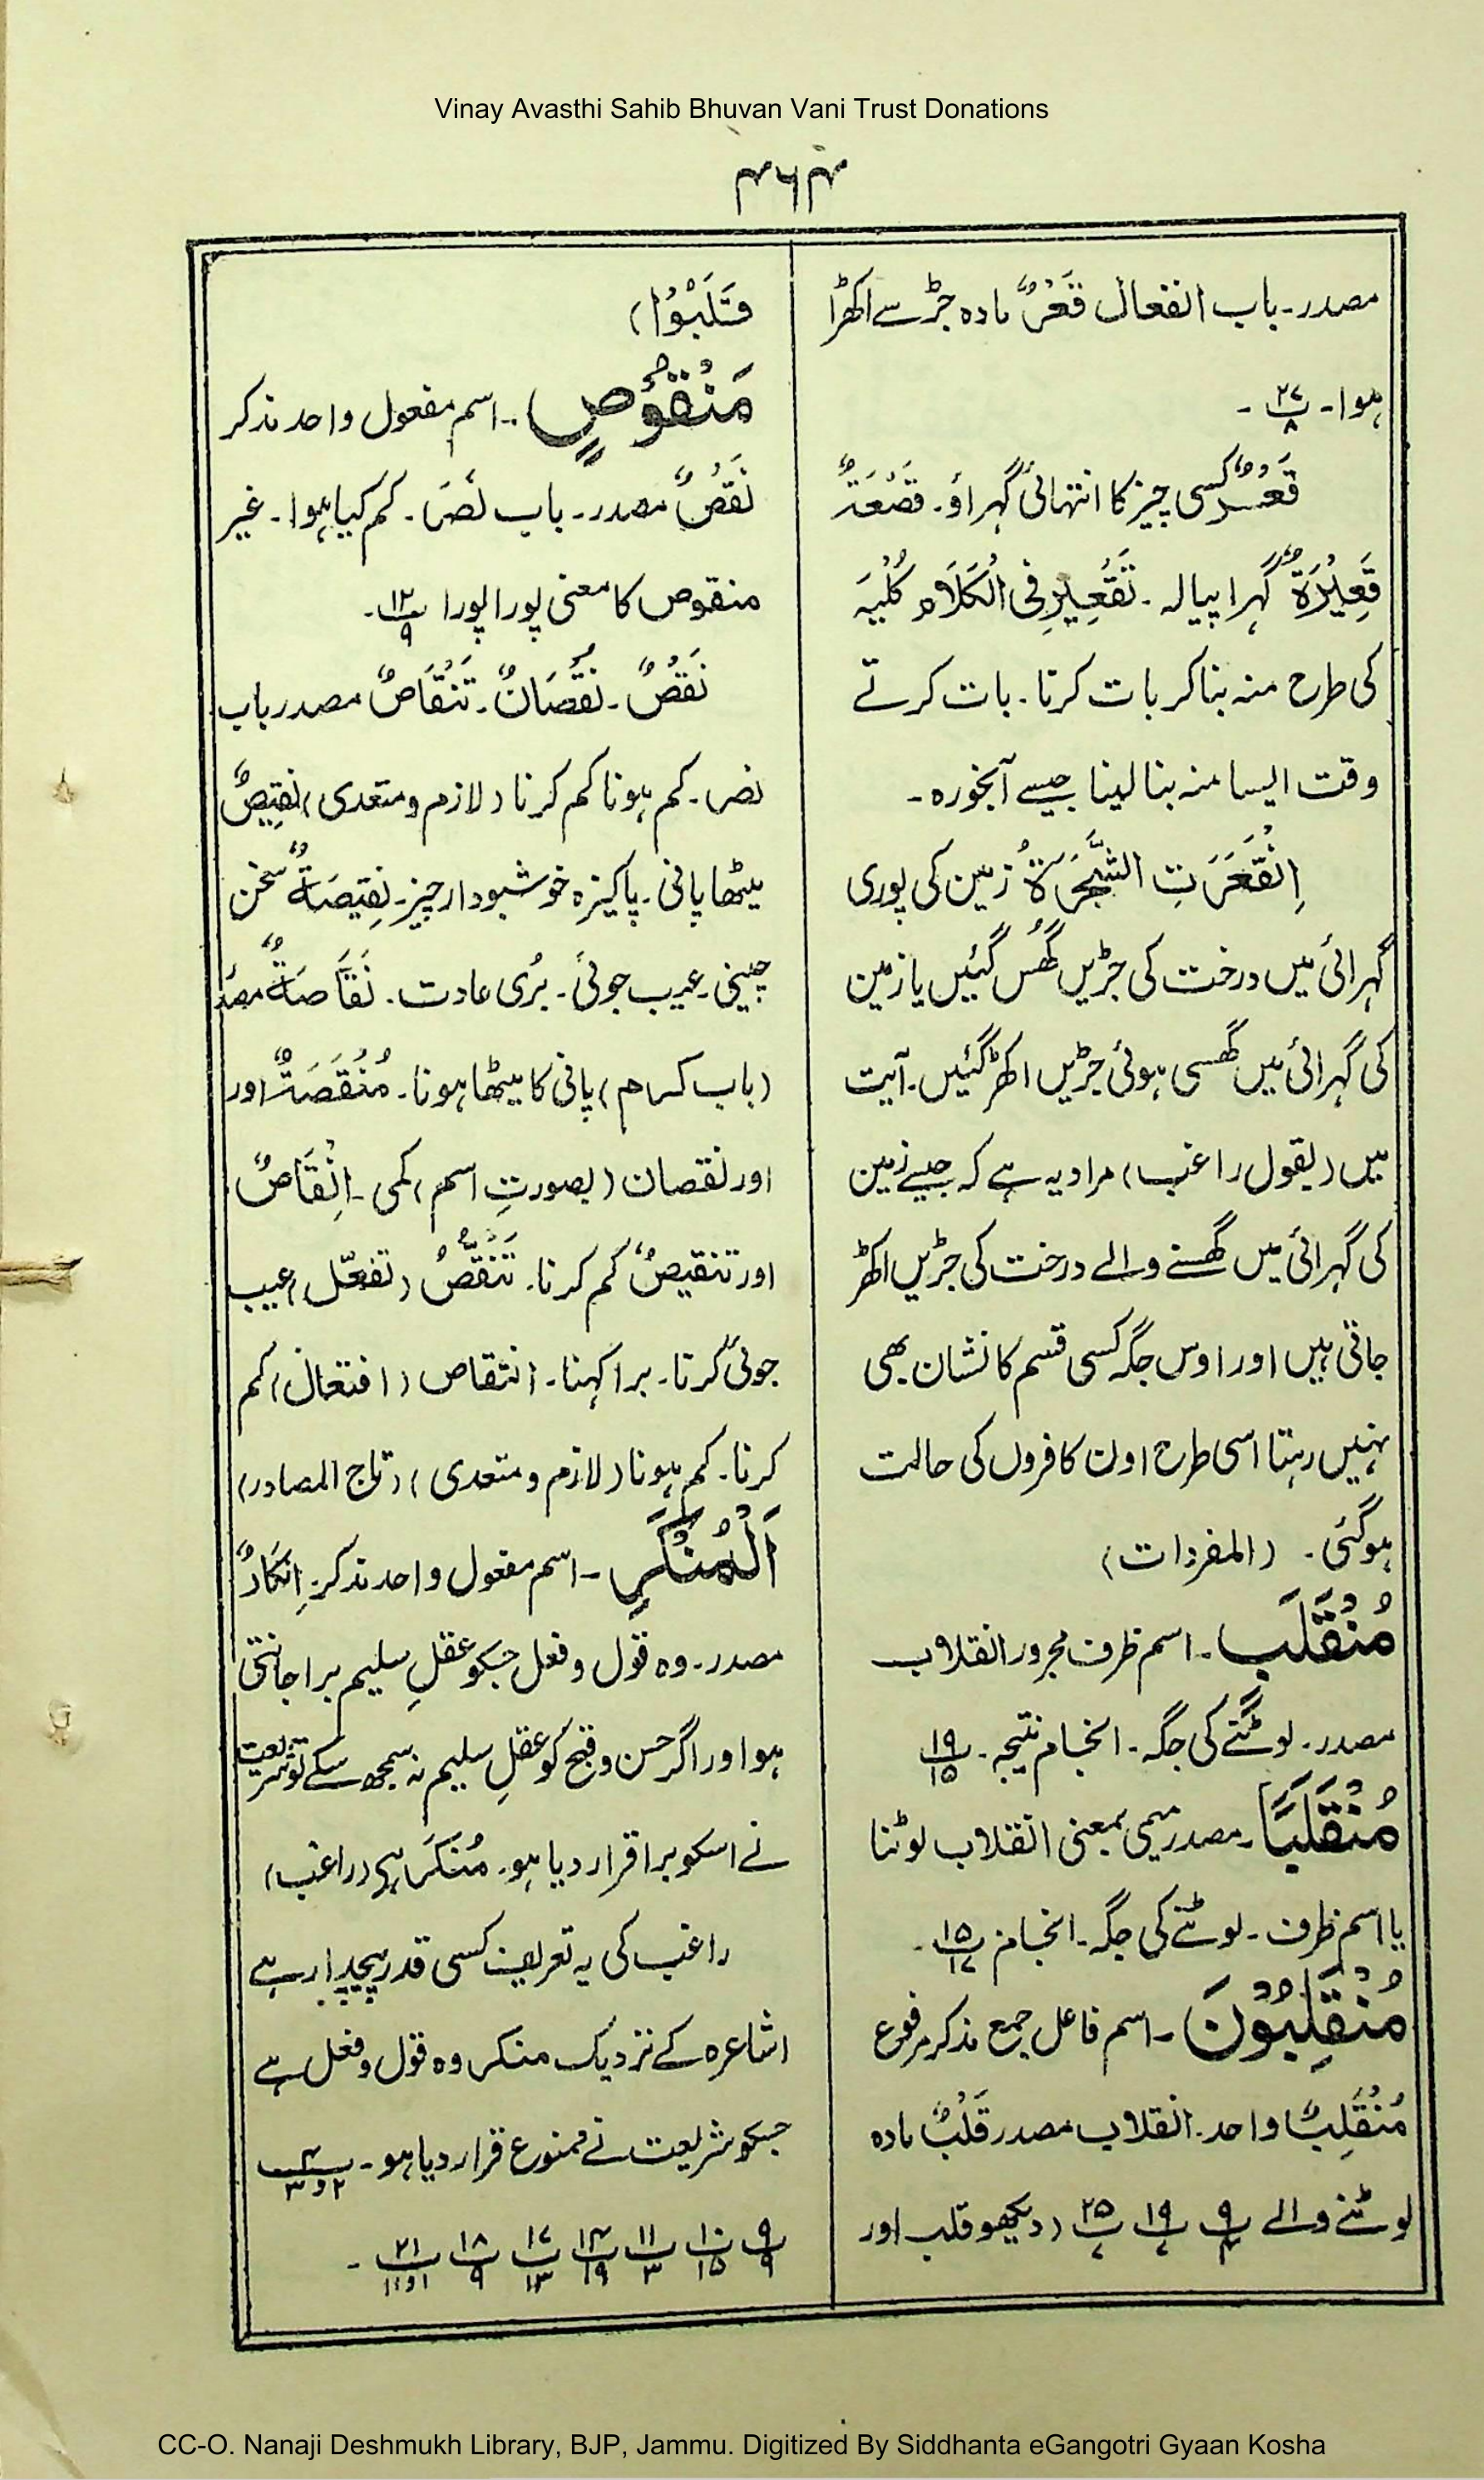 Vinay Avasthi Sahib Bhuvan Vani Trust Donations
۴۶۴
مصدر۔ باب انفعال قَعْرٌ مادہ جڑ سے اکھڑا
ہوا۔ ۲۷/۸ ۔
قَعْرٌ کسی چیز کا انتہائی گہراؤ۔ قَصْعَۃٌ
قَعِیْرَۃٌ گہرا پیالہ۔ تَقْعِیْر فِی الْکَلَام کُلْیَہ
کی طرح منہ بنا کر بات کرنا۔ بات کرتے
وقت ایسا منہ بنا لینا جیسے آبخورہ۔
اِنْقَعَرَتِ الشَّجَرَۃُ زمین کی پوری
گہرائی میں درخت کی جڑیں گھُس گئیں یا زمین
کی گہرائی میں گھسی ہوئی جڑیں اکھڑ گئیں۔ آیت
میں (بقول راغب) مراد یہ ہے کہ جیسے زمین
کی گہرائی میں گھسنے والے درخت کی جڑیں اکھڑ
جاتی ہیں اور اوس جگہ کسی قسم کا نشان بھی
نہیں رہتا اسی طرح اون کافروں کی حالت
ہوگئی۔ (المفردات)
مُنْقَلَبٍ۔ اسم ظرف مجرور انقلاب
مصدر۔ لوٹنے کی جگہ۔ انجام نتیجہ۔ ۱۹/۱۵
مُنْقَلَبًا۔ مصدر میمی بمعنی انقلاب لوٹنا
یا اسم ظرف۔ لوٹنے کی جگہ۔ انجام ۱۵/۱۷ ۔
مُنْقَلِبُوْنَ۔ اسم فاعل جمع مذکر مرفوع
مُنْقَلِبٌ واحد۔ انقلاب مصدر قَلْبٌ مادہ
لوٹنے والے ۹/۴ ۱۹/۷ ۲۵/۷ (دیکھو قلب اور
فَتَلَبُوْا)
مَنْقُوْصٍ۔ اسم مفعول واحد مذکر
نَقْصٌ مصدر۔ باب نَصَرَ۔ کم کیا ہوا۔ غیر
منقوص کا معنی پورا پورا ۱۲/۹ ۔
نَقْصٌ۔ نُقْصَانٌ۔ تَنْقَاصٌ مصدر باب
نصر۔ کم ہونا کم کرنا (لازم و متعدی) نَقِیْصٌ
میٹھا پانی۔ پاکیزہ خوشبودار چیز۔ نَقِیْصَۃٌ سخن
چینی۔ عیب جوئی۔ بُری عادت۔ نَقَاصَۃٌ مصدر
(باب کرم) پانی کا میٹھا ہونا۔ مُنْقَصَۃٌ اور
اور نقصان (بصورتِ اسم) کمی۔ اِنْقَاصٌ
اور تنقیصٌ کم کرنا۔ تَنَقُّصٌ (تفعّل) عیب
جوئی کرنا۔ برا کہنا۔ انتقاص (افتعال) کم
کرنا۔ کم ہونا (لازم و متعدی) (تاج المصادر)
اَلْمُنْکَرِ۔ اسم مفعول واحد مذکر۔ اِنْکَارٌ
مصدر۔ وہ قول و فعل جسکو عقلِ سلیم برا جانتی
ہو اور اگر حسن و قبح کو عقلِ سلیم نہ سمجھ سکے تو شریعت
نے اسکو برا قرار دیا ہو۔ مُنْکَر ہے (راغب)
راغب کی یہ تعریف کسی قدر پیچدار ہے
اشاعرہ کے نزدیک منکر وہ قول و فعل ہے
جسکو شریعت نے ممنوع قرار دیا ہو۔ ۴/۲ و ۳
۹/۹ ۱۰/۱۵ ۱۱/۳ ۱۴/۱۹ ۱۷/۱۳ ۱۸/۹ ۲۱/۱ و ۱۱ ۔
CC-O. Nanaji Deshmukh Library, BJP, Jammu. Digitized By Siddhanta eGangotri Gyaan Kosha